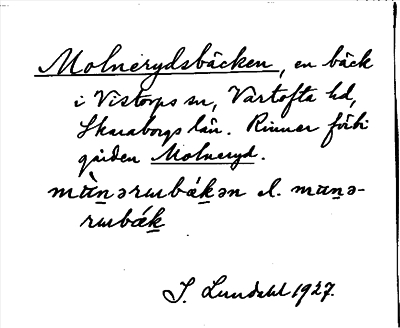 Molnerydsbäcken, en bäck
i Vistorps sn, Vartofta hd,
Skaraborgs län. Rinner förbi
gården Molneryd.
mùṉərɯbákən el. mɯṉə-
rɯbák
I. Lundahl 1927.